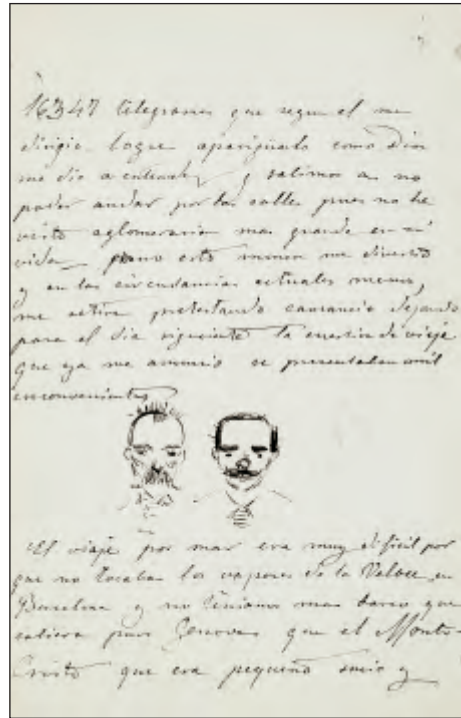 16347 telegramas que segun el me
dirigio logre apaciguarlo como Dios
me dio a entender y salimos a no
poder andar por las calles pues no he
visto aglomeracion mas grande en mi
vida, pero esto nunca me divertió
y en las circunstancias actuales menos,
me retire pretestando cansancio dejando
para el dia siguiente la cuestion de viaje
que ya me anuncio se presentaban mil
inconvenientes
El viaje por mar era muy dificil por
que no tocaban los vapores de la Veloce en
Barcelona y no teniamos mas barco que
saliera para Genova que el Monte-
Cristo que era pequeño sucio y